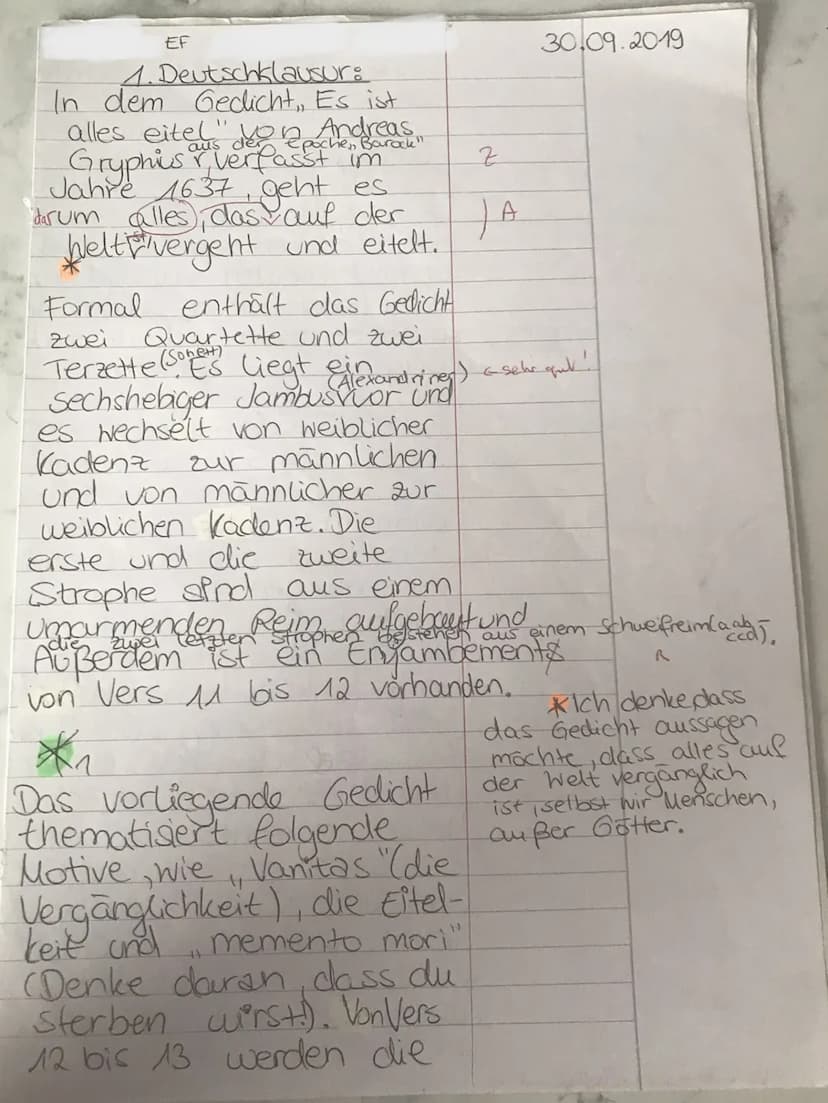 EF
30.09.2019
1. Deutschklausur:
In dem Gedicht „Es ist
alles eitel" von Andreas
aus der Epoche „Barock"
Gryphius, verfasst im
Z
Jahre 1637, geht es
darum alles, das auf der
A
Welt ist vergeht und eitelt.
*
Formal enthält das Gedicht
zwei Quartette und zwei
Terzette (Sonett). Es liegt ein
(Alexandriner)
← sehr gut!
sechshebiger Jambus vor und
es wechselt von weiblicher
Kadenz zur männlichen
und von männlicher zur
weiblichen Kadenz. Die
erste und die zweite
Strophe sind aus einem
umarmenden Reim aufgebaut und
die zwei letzten Strophen bestehen aus einem Schweifreim (aab, ccd).
Außerdem ist ein Enjambements
R
von Vers 11 bis 12 vorhanden.
*1
* Ich denke dass
das Gedicht aussagen
möchte, dass alles auf
der Welt vergänglich
ist, selbst wir Menschen,
außer Götter.
Das vorliegende Gedicht
thematisiert folgende
Motive, wie „Vanitas" (die
Vergänglichkeit), die Eitel-
keit und „memento mori"
(Denke daran, dass du
sterben wirst!). Von Vers
12 bis 13 werden die